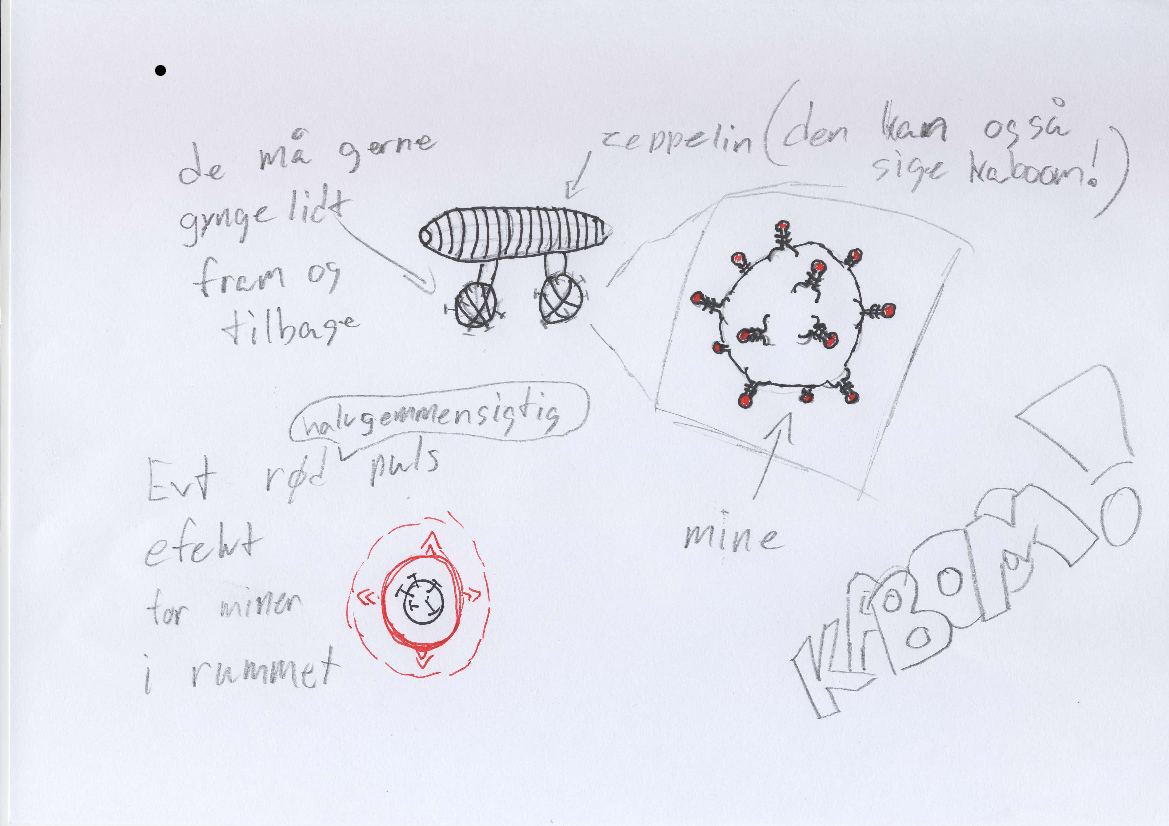 de må gerne
gynge lidt
fram og
tilbage
zeppelin (den kan også
sige kaboom!)
mine
halvgemmensigtig
Evt rød puls
efekt
for minen
i rummet
KABOOM!